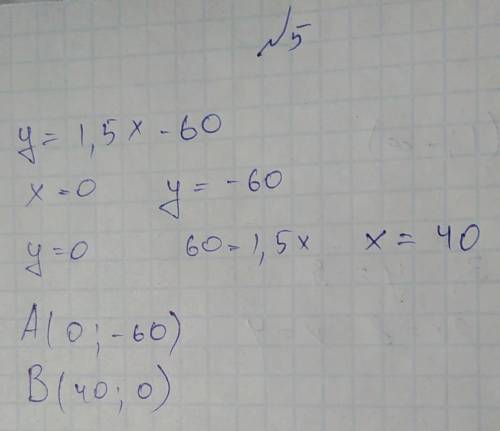 №5
y = 1,5x - 60
x = 0 y = -60
y = 0 60 = 1,5x x = 40
A(0; -60)
B(40; 0)